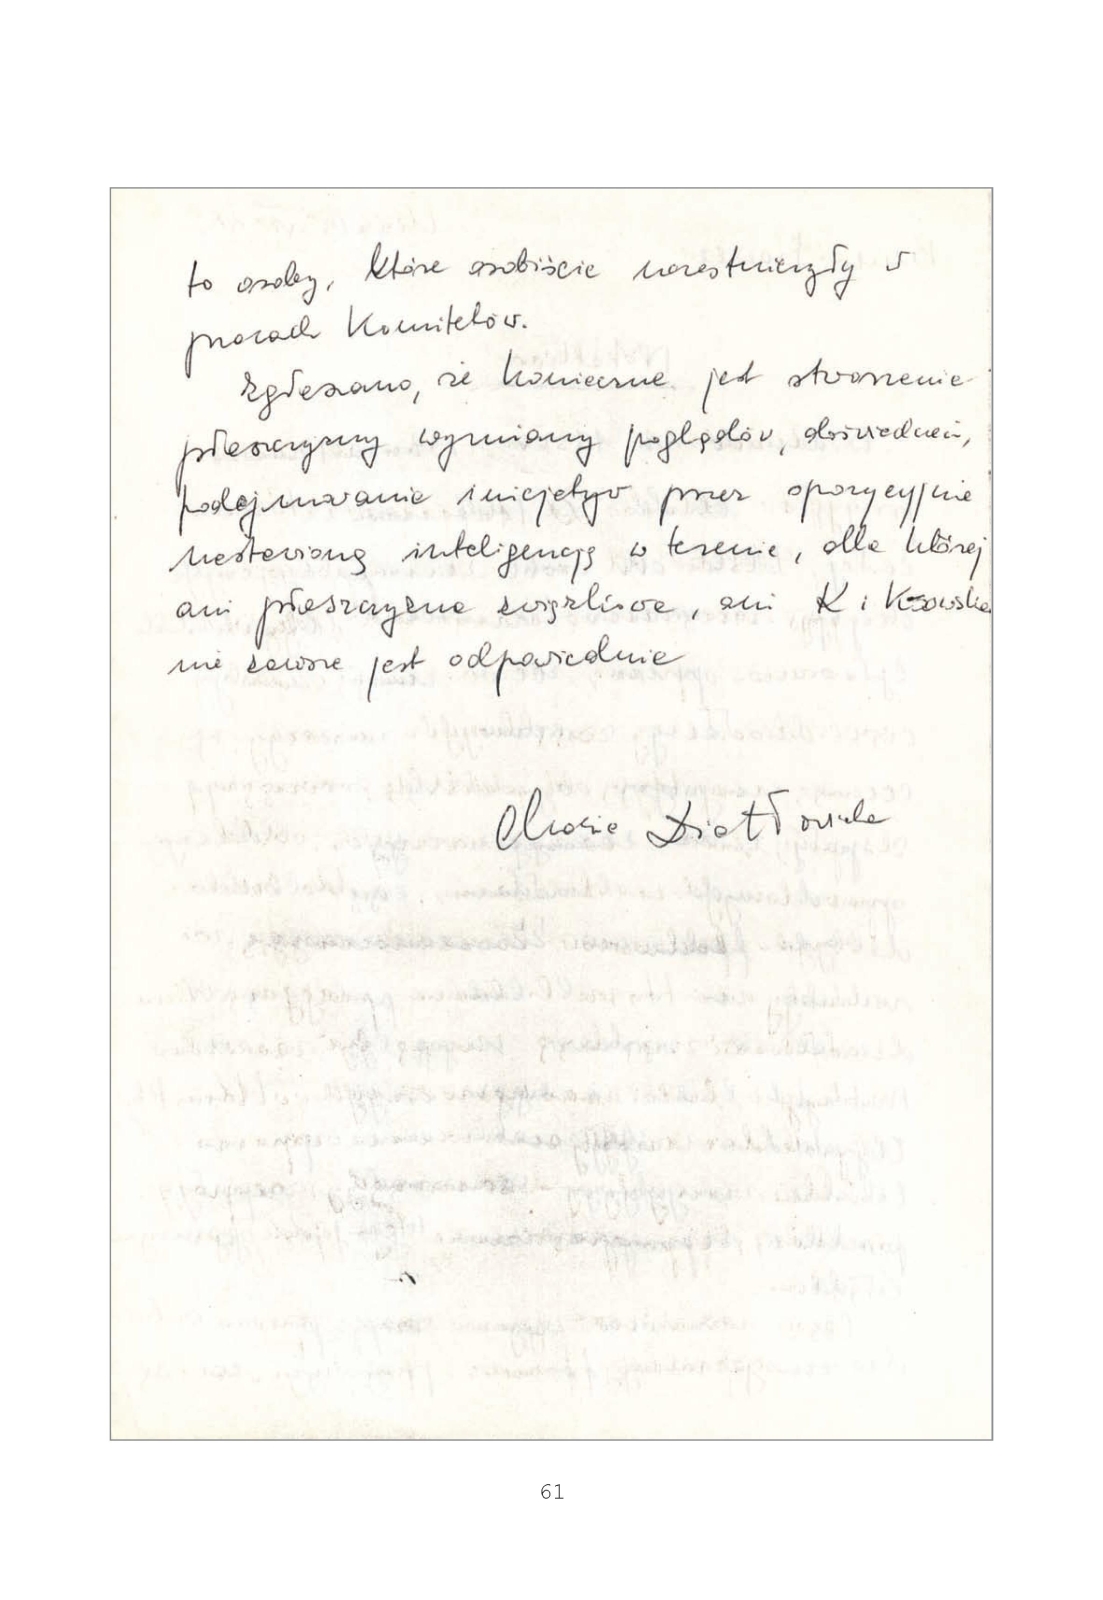 to osoby, które osobiście uczestniczyły w
pracach Komitetów.
Zgłaszano, że konieczne jest stworzenie
płaszczyzny wymiany poglądów, doświadczeń,
podejmowanie inicjatyw przez opozycyjnie
nastawioną inteligencję w terenie, dla której
ani płaszczyzna związkowa, ani K i
nie zawsze jest odpowiednie
61